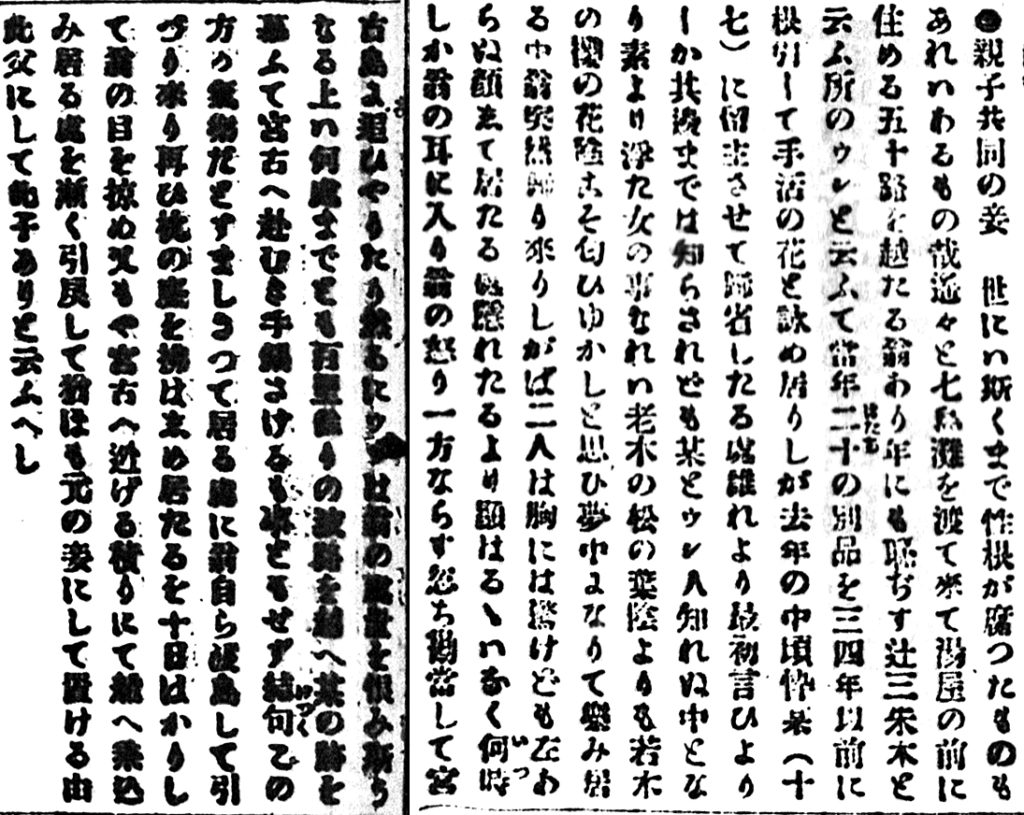 ◉親子共同の妾　世にハ斯くまで性根が腐つたものも
あれハわるもの哉遥々と七島灘を渡て来て湯屋の前に
住める五十路を越たる翁わり年にも恥ぢす辻三朱木と
云ふ所のウシと云ふて当年二十の別品を三四年以前に
根引して手活の花と詠め居りしが去年の中頃忰某（十
七）に留主させて帰省したる
より最初言ひより
しか其後までは知らされども某とウシ人知れぬ中とな
り素より浮た女の事なれハ老木の松の葉陰よりも若木
の桜の花陰こそ匂ひゆかしと思ひ夢中になりて楽み居
る中翁突然帰り来りしがば二人は胸には驚けども左あ
らぬ顔して居たる
れたるより顕はるゝハなく何時
しか翁の耳に入り翁の怒り一方ならず忽ち勘当して宮
古島に追ひやりたり然るにウシは翁の
を恨み斯う
なる上ハ何処までとも百里余りの波路を越へ某の跡を
慕ふて宮古へ赴むき手鍋さげるも事ともせず結句この
方が気楽だとすましきつて居る処に翁自ら渡島して引
づり来り再ひ枕の塵を払はしめ居たるを十日はかりし
て翁の目を掠め又もや宮古へ逃げる積りにて船へ乗込
み居る処を漸く引戻して猶ほも元の妾にして置ける由
此父にして此子ありと云ふへし